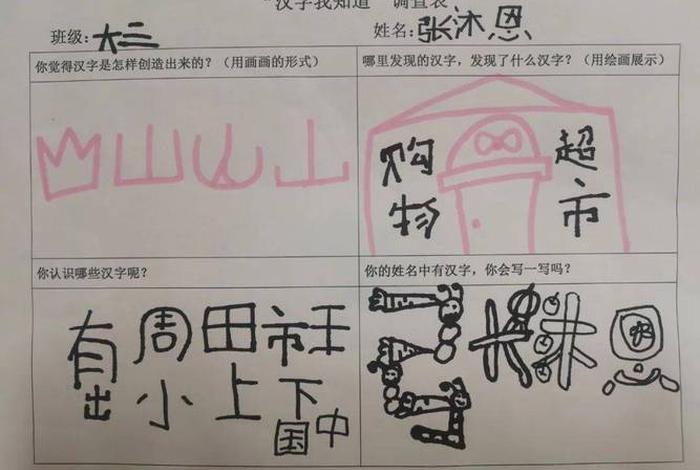 "汉字我知道" 调查表
班级：大三 姓名：张沐恩
你觉得汉字是怎样创造出来的？（用画画的形式）
山山山
哪里发现的汉字，发现了什么汉字？（用绘画展示）
购物 超市
你认识哪些汉字呢？
有周田市王
出小上下
国中
你的姓名中有汉字，你会写一写吗？
张沐恩